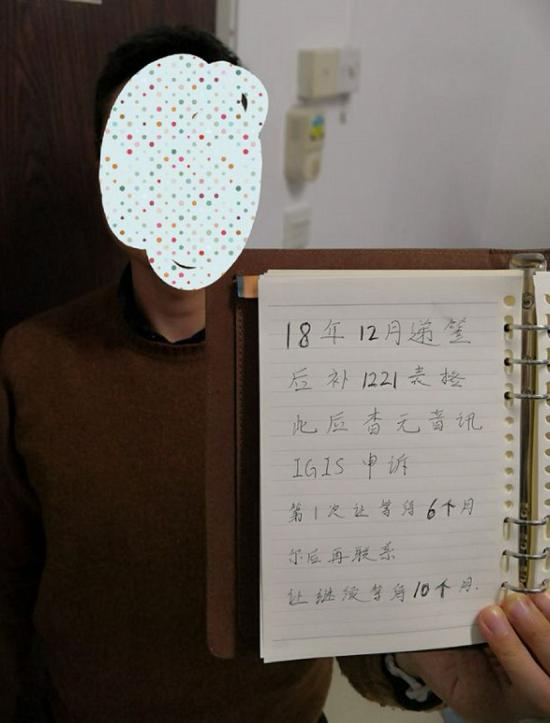 18年12月递签
后补1221表格
此后杳无音讯
IGIS 申诉
第1次让等待6个月
尔后再联系
让继续等待10个月.